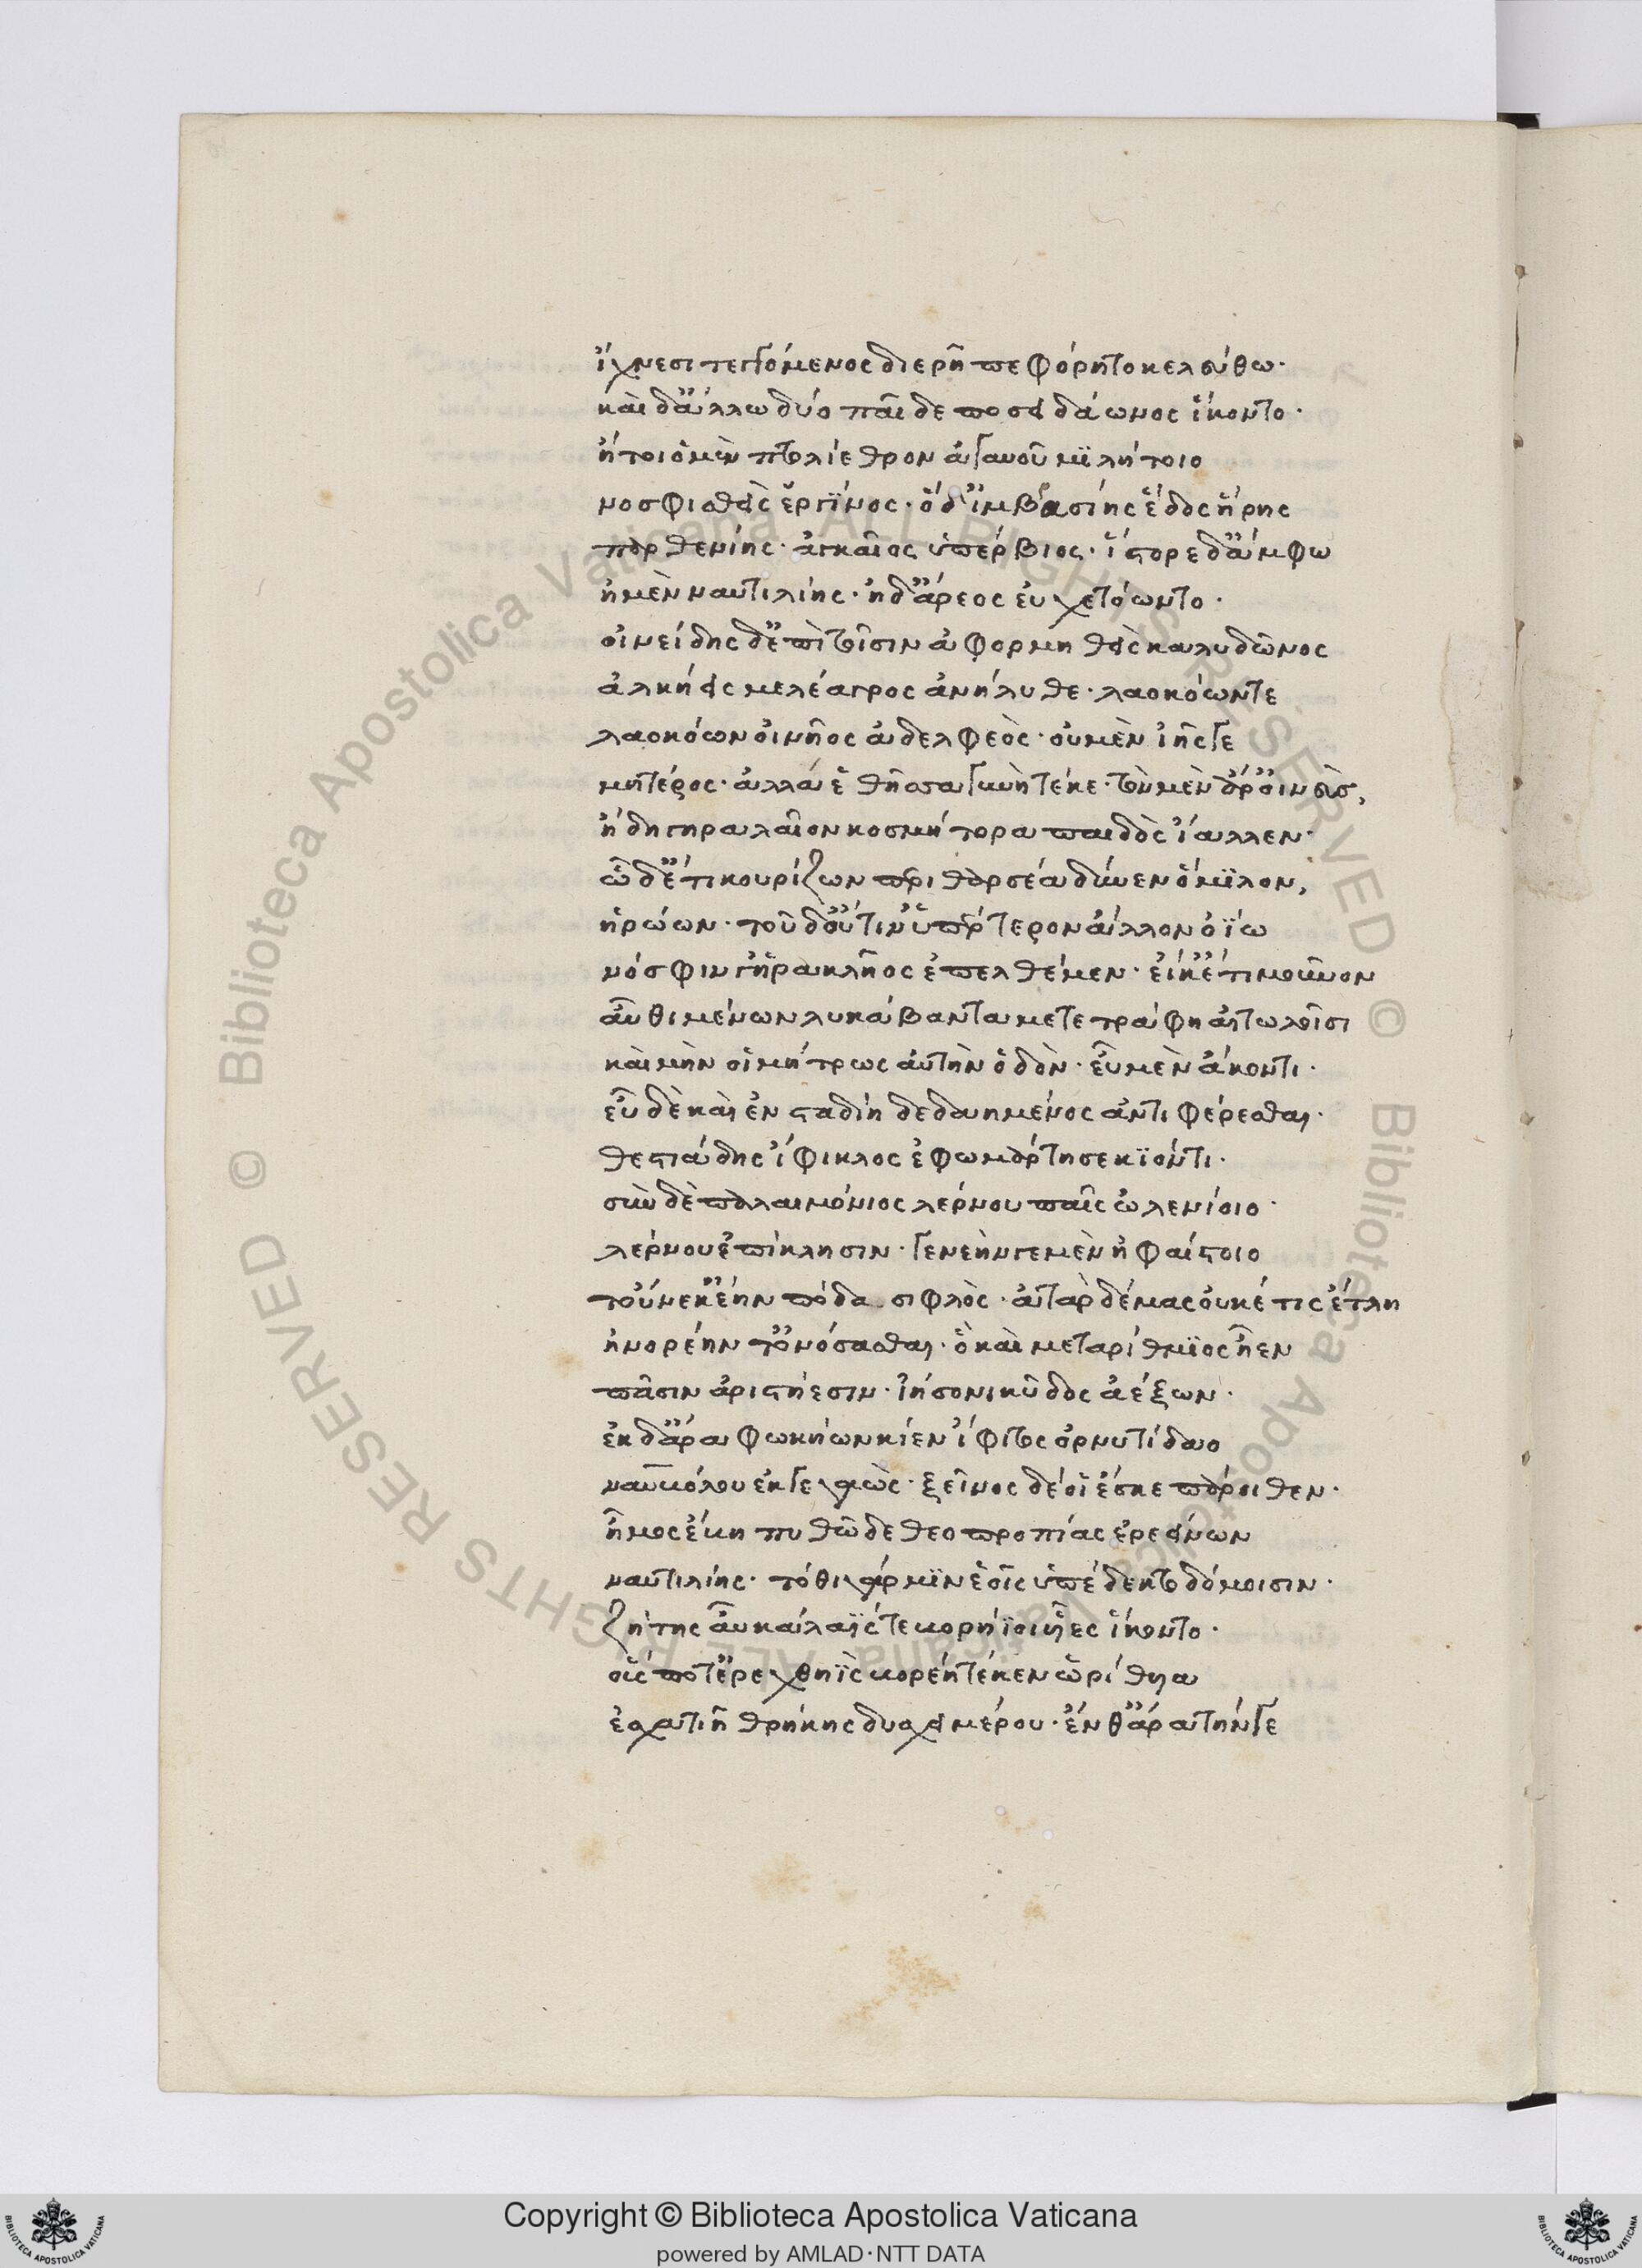 ἴχνεσι τεγγόμενος διερῆ πεφόρητο κελεύθω·
καὶ δ᾽ ἄλλω δύο παῖδε ποσειδάωνος ἵκοντο·
ἤτοι ὁ μὲν πτολίεθρον ἀγαυοῦ μιλήτοιο
νοσφισθεὶς ἐργῖνος· ὁ δ᾽ ἰμβρασίης ἕδος ἥρης
παρθενίης· ἀγκαῖος ὑπέρβιος· ἵστορε δ᾽ ἄμφω
ἠμὲν ναυτιλίης· ἠδ᾽ ἄρεος εὐχετόωντο·
οἰνείδης δ᾽ ἐπὶ τοῖσιν ἀφορμηθεὶς καλυδῶνος
ἀλκήεις μελέαγρος ἀνήλυθε· λαοκόων τε
λαοκόων οἰνῆος ἀδελφεὸς· οὐ μὲν ἰῆς γε
μητέρος· ἀλλά ἑ θῆσσα γυνὴ τέκε· τὸν μὲν ἄρ᾽ οἰνεὺς,
ἤδη γηραλαῖον κοσμήτορα παιδὸς ἴαλλεν·
ὧδ᾽ ἔτι κουρίζων περιθαρσέα δύνεν ὅμιλον,
ἡρώων· τοῦ δ᾽ οὔτιν᾽ ὑπέρτερον ἄλλον ὀΐω
νόσφιν γ᾽ ἡρακλῆος ἐπελθέμεν· εἴ κ᾽ ἔτι μοῦνον
αὖθι μένων λυκάβαντα μετετράφη αἰτωλοῖσι
καὶ μήν οἱ μήτρως αὐτὴν ὁδὸν· εὖ μὲν ἄκοντι·
εὖ δὲ καὶ ἐν σταδίη δεδαημένος ἀντιφέρεσθαι·
θεστιάδης ἴφικλος ἐφωμάρτησε κιόντι·
σὺν δὲ παλαιμόνιος λέρνου παῖς ὠλενίοιο·
λέρνου ἐπίκλησιν· γενεήν γε μὲν ἡφαίστοιο
τοὔνεκ᾽ ἔην πόδα σιφλὸς· ἀτὰρ δέμας οὐκέ τις ἔτλη
ἠνορέην τ᾽ ὀνόσασθαι· ὃ καὶ μεταρίθμιος ἦεν
πᾶσιν ἀριστήεσιν· ἰήσονι κῦδος ἀέξων·
ἐκ δ᾽ ἄρα φωκήων κίεν ἴφιτος ὀρνυτίδαο
ναυβόλου ἐκγεγαὼς· ξεῖνος δέ οἱ ἔσκε πάροιθεν·
ἦμος ἔβη πυθῶδε θεοπροπίας ἐρεείνων
ναυτιλίης· τόθι γάρ μιν ἑοῖς ὑπέδεκτο δόμοισιν·
ζήτης αὖ κάλαΐς τε βορήϊοι υἷες ἵκοντο·
οὕς ποτ᾽ ἐρεχθηῒς βορέη τέκεν ὠρίθυια
ἐσχατιῆ θρήκης δυσχειμέρου· ἔνθ᾽ ἄρα τήν γε
Copyright © Biblioteca Apostolica Vaticana
powered by AMLAD·NTT DATA
© Biblioteca Apostolica Vaticana ALL RIGHTS RESERVED © Biblioteca Apostolica Vaticana ALL RIGHTS RESERVED